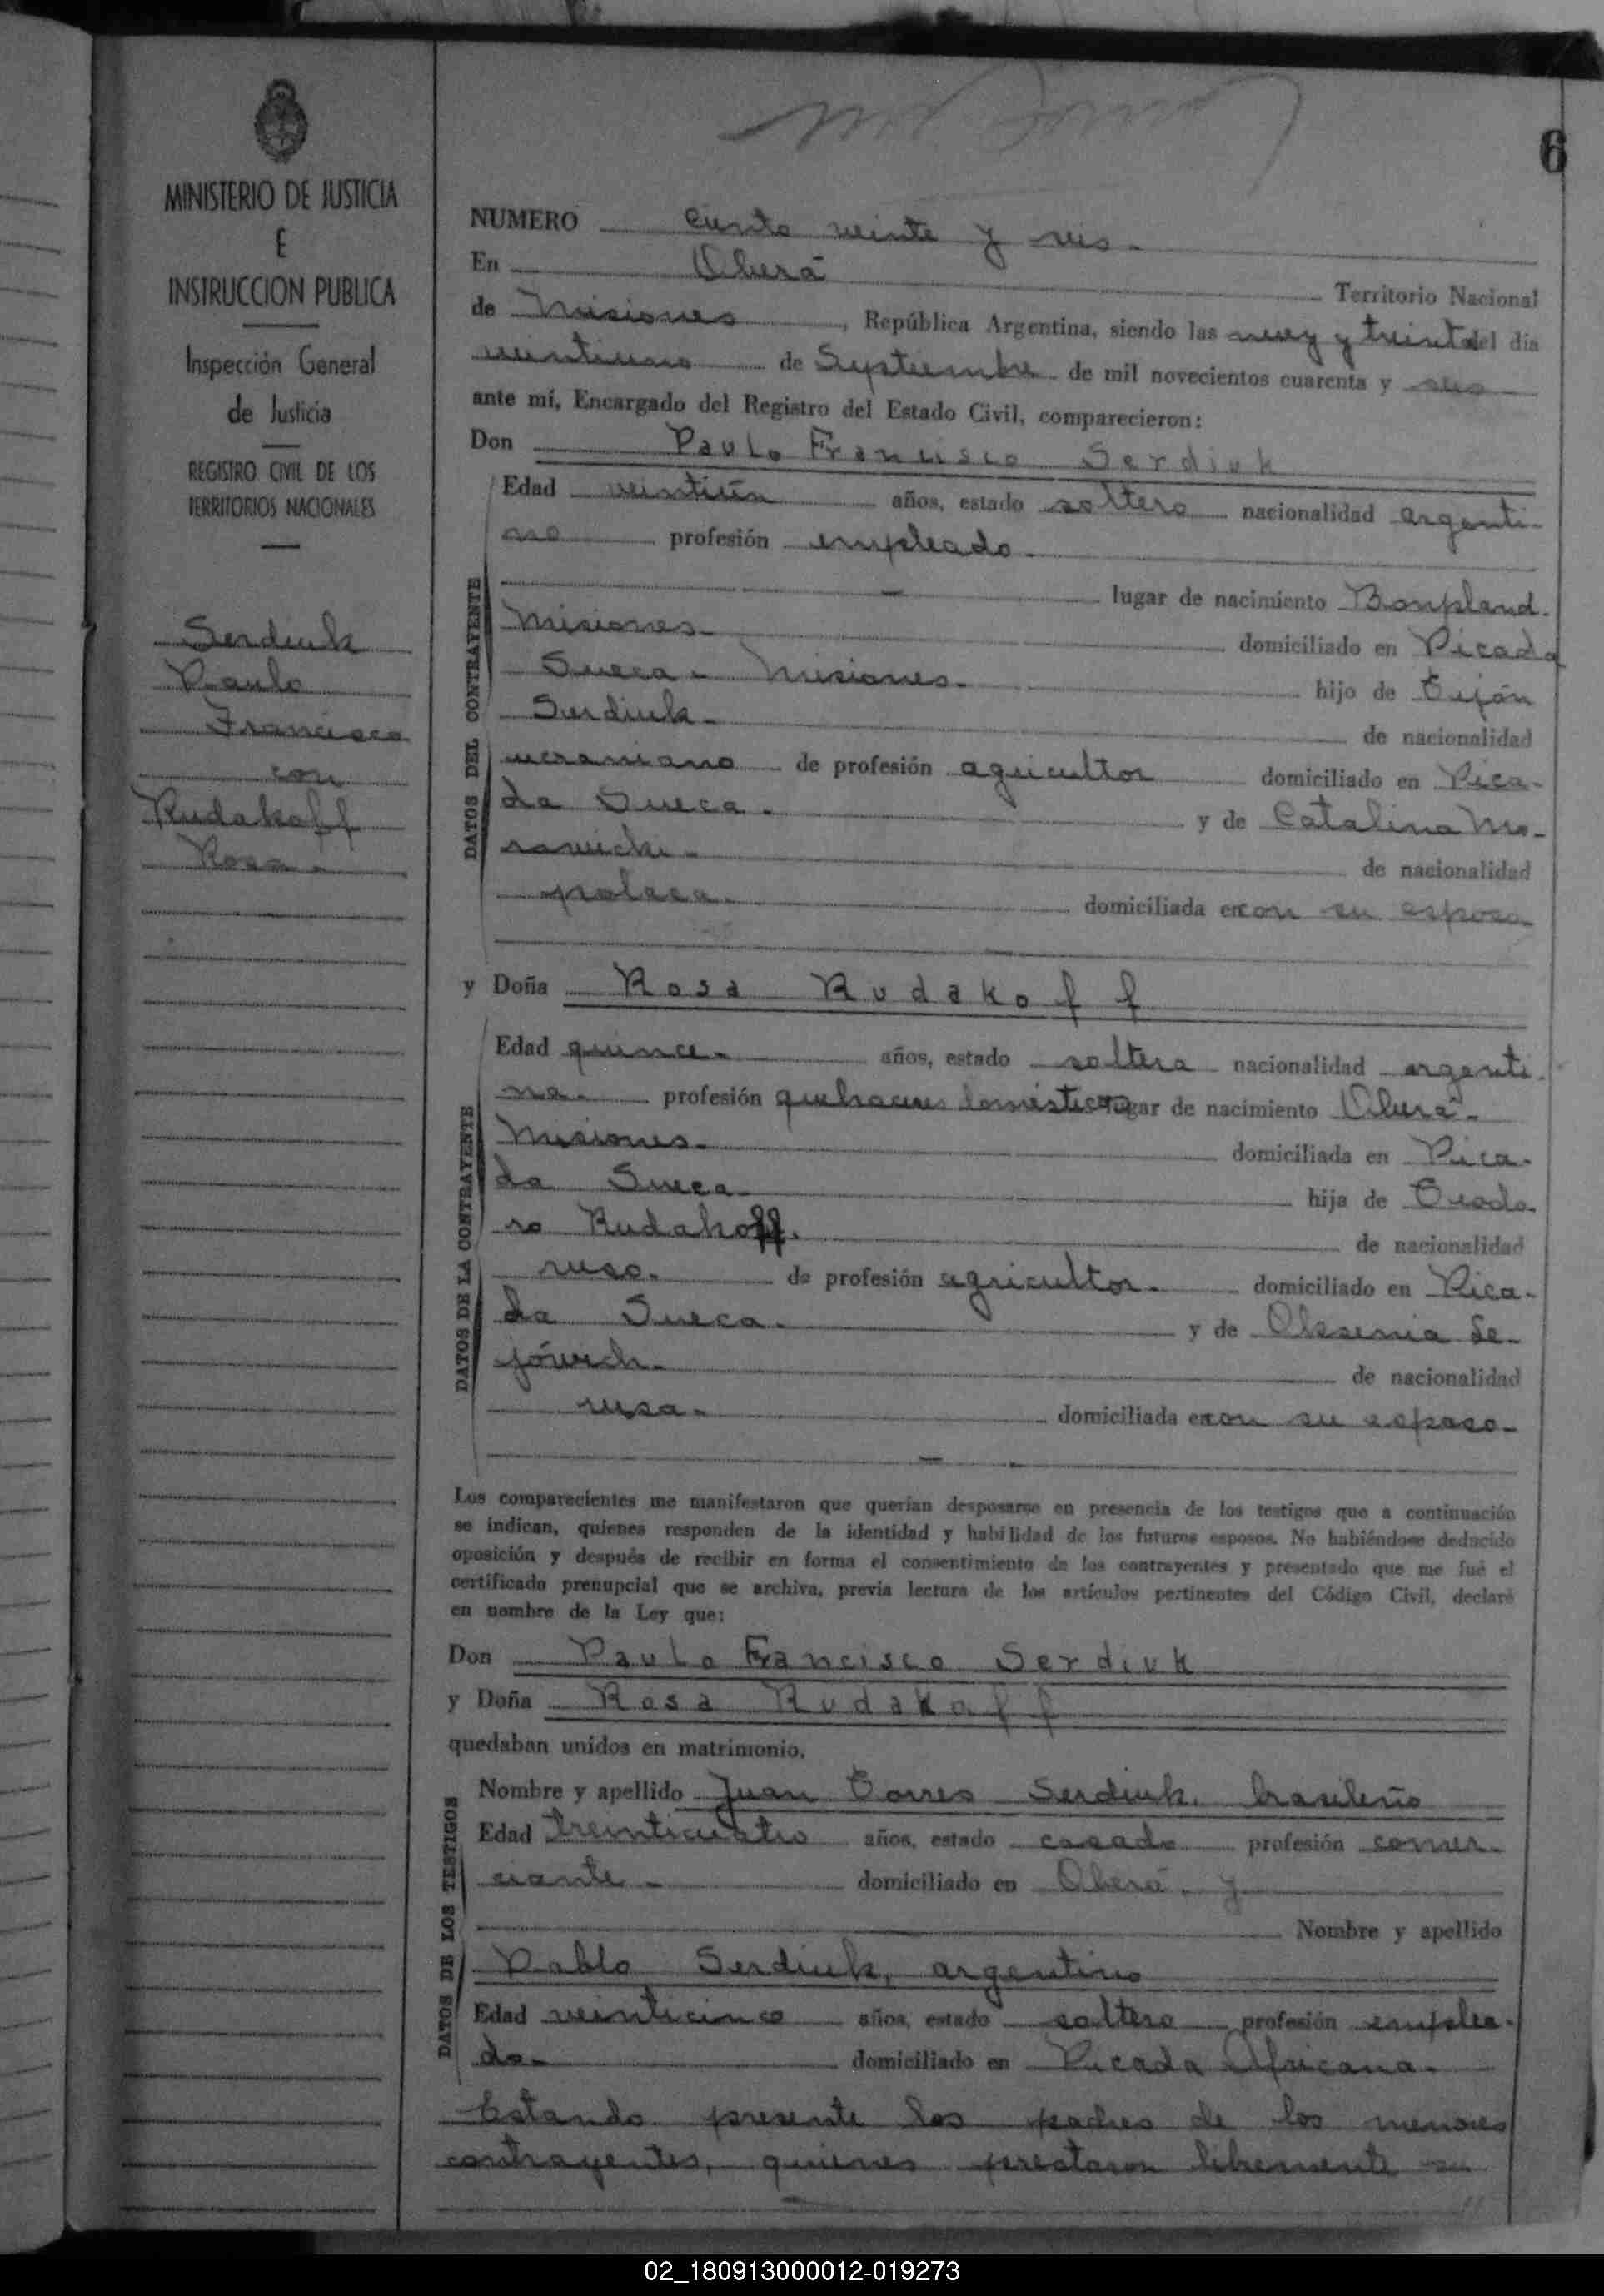 6
MINISTERIO DE JUSTICIA
E
INSTRUCCION PUBLICA
Inspección General
de Justicia
REGISTRO CIVIL DE LOS
TERRITORIOS NACIONALES
Serdiuk
Paulo
Francisco
con
Rudakoff
Rosa.
NUMERO ciento veinte y seis.
En Oberá Territorio Nacional
de Misiones, República Argentina, siendo las nuevy y treinta del día
veintiuno de Septiembre de mil novecientos cuarenta y seis
ante mí, Encargado del Registro del Estado Civil, comparecieron:
Don Paulo Francisco Serdiuk
DATOS DEL CONTRAYENTE
Edad veintiún años, estado soltero nacionalidad argenti-
no profesión empleado.
lugar de nacimiento Bonpland.
Misiones. domiciliado en Picada
Sueca - Misiones. hijo de
Serdiuk. de nacionalidad
ucraniano de profesión agricultor domiciliado en Pica-
da Sueca. y de Catalina Mo-
rawicki. de nacionalidad
polaca. domiciliada en con su esposo
y Doña Rosa Rudakoff
DATOS DE LA CONTRAYENTE
Edad quince. años, estado soltera nacionalidad argenti-
na. profesión quehaceres domésticos lugar de nacimiento Oberá.
Misiones. domiciliada en Pica-
da Sueca. hija de Teodo-
ro Rudakoff. de nacionalidad
ruso. de profesión agricultor. domiciliado en Pica-
da Sueca. y de Oksenia
de nacionalidad
rusa. domiciliada en con su esposo.
Los comparecientes me manifestaron que querían desposarse en presencia de los testigos que a continuación
se indican, quienes responden de la identidad y habilidad de los futuros esposos. No habiéndose deducido
oposición y después de recibir en forma el consentimiento de los contrayentes y presentado que me fué el
certificado prenupcial que se archiva, previa lectura de los artículos pertinentes del Código Civil, declaré
en nombre de la Ley que:
Don Paulo Francisco Serdiuk
y Doña Rosa Rudakoff
quedaban unidos en matrimonio.
DATOS DE LOS TESTIGOS
Nombre y apellido Juan Torres Serdiuk, brasileño
Edad treinticuatro años, estado casado profesión comer-
ciante. domiciliado en Oberá. y
Nombre y apellido
Pablo Serdiuk, argentino
Edad veinticinco años, estado soltero profesión emplea-
do. domiciliado en Picada Africana.
Estando presente los padres de los menores
contrayentes, quienes prestaron libremente su
02_180913000012-019273